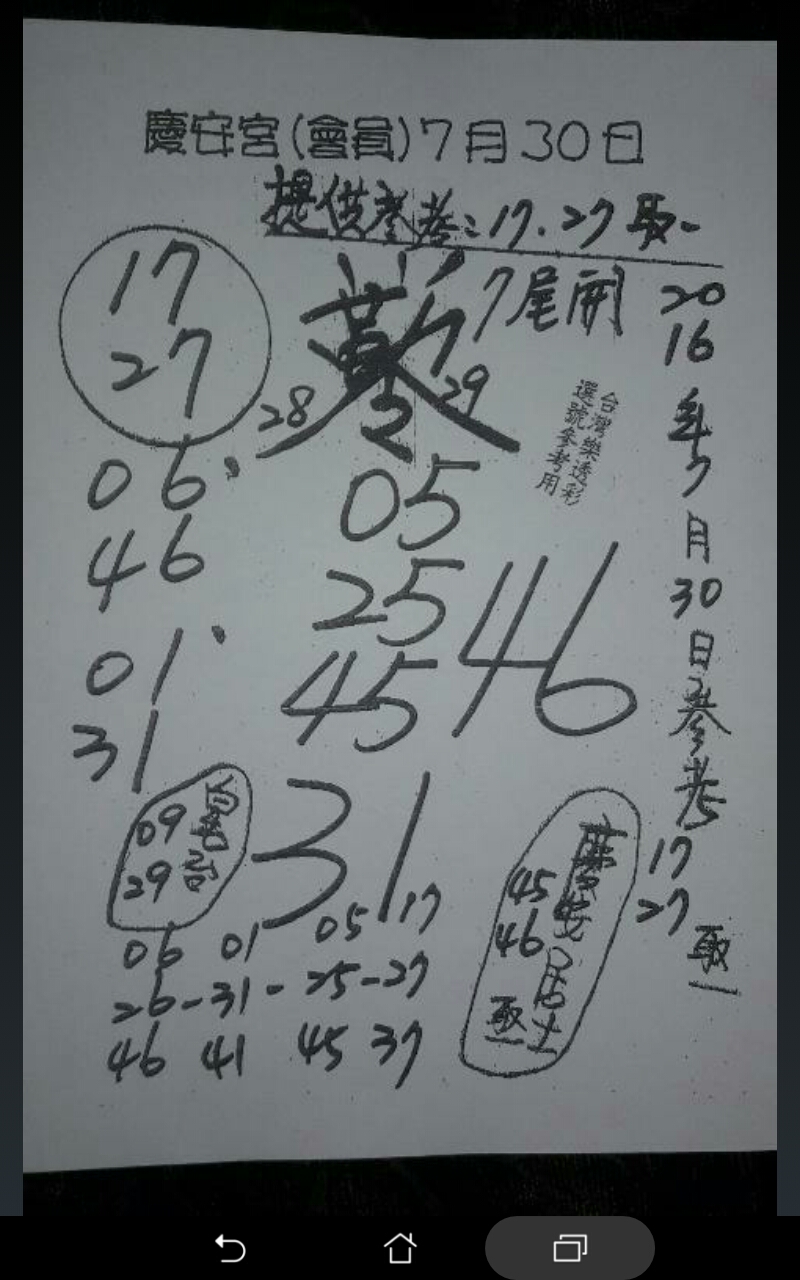 慶安宮(會員)7月30日
提供參考:17.27取一
17
27
7尾開
28
29
05
25
45
46
06
46
01
31
31
台灣樂透彩
選號參考用
2016年7月30日參考
17
27
取一
09
29
慶安居士
45
46
取一
06 01 05 17
26-31-25-27
46 41 45 37